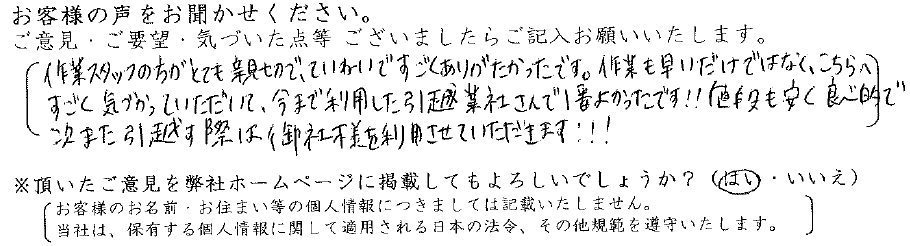 お客様の声をお聞かせください。
ご意見・ご要望・気づいた点等 ございましたらご記入お願いいたします。
作業スタッフの方がとても親切で、ていねいですごくありがたかったです。作業も早いだけではなく、こちらへ
すごく気づかっていただいて、今まで利用した引越業社さんで1番よかったです!!値段も安く良心的で
次また引越す際は御社様を利用させていただきます!!!
※頂いたご意見を弊社ホームページに掲載してもよろしいでしょうか?(はい・いいえ)
お客様のお名前・お住まい等の個人情報につきましては記載いたしません。
当社は、保有する個人情報に関して適用される日本の法令、その他規範を遵守いたします。